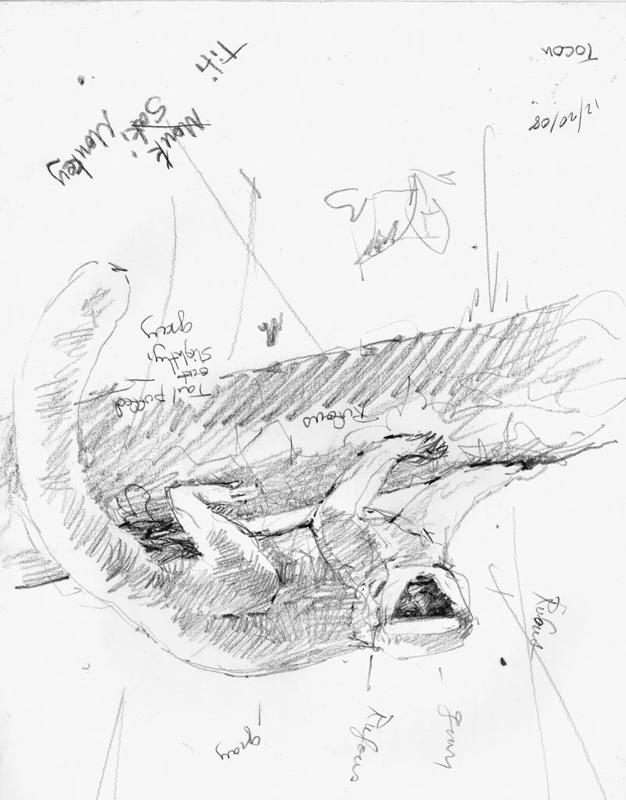 Tocon
12/20/08
Titi
Monk
Saki
Monkey
Tail puffed
out,
slightly
gray
Rufous
Rufus
gray
Rufous
gray